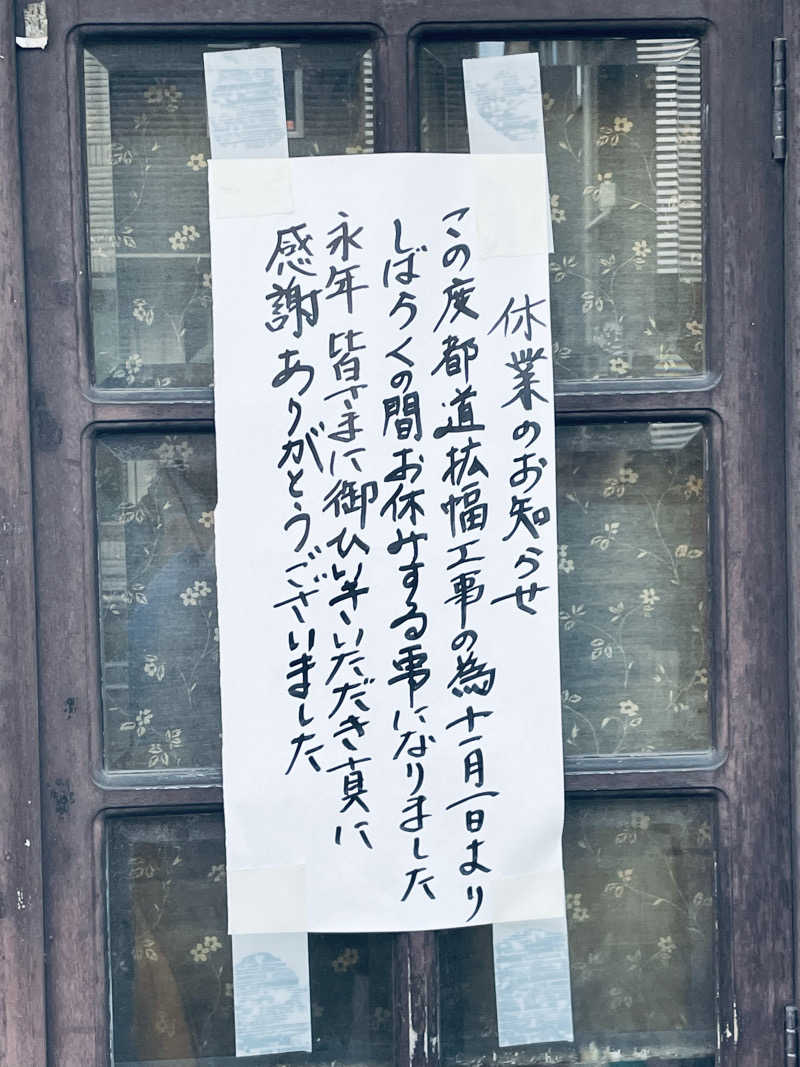 休業のお知らせ
この度都道拡幅工事の為十一月一日より
しばらくの間お休みする事になりました
永年皆さまに御ひいきいただき真に
感謝ありがとうございました